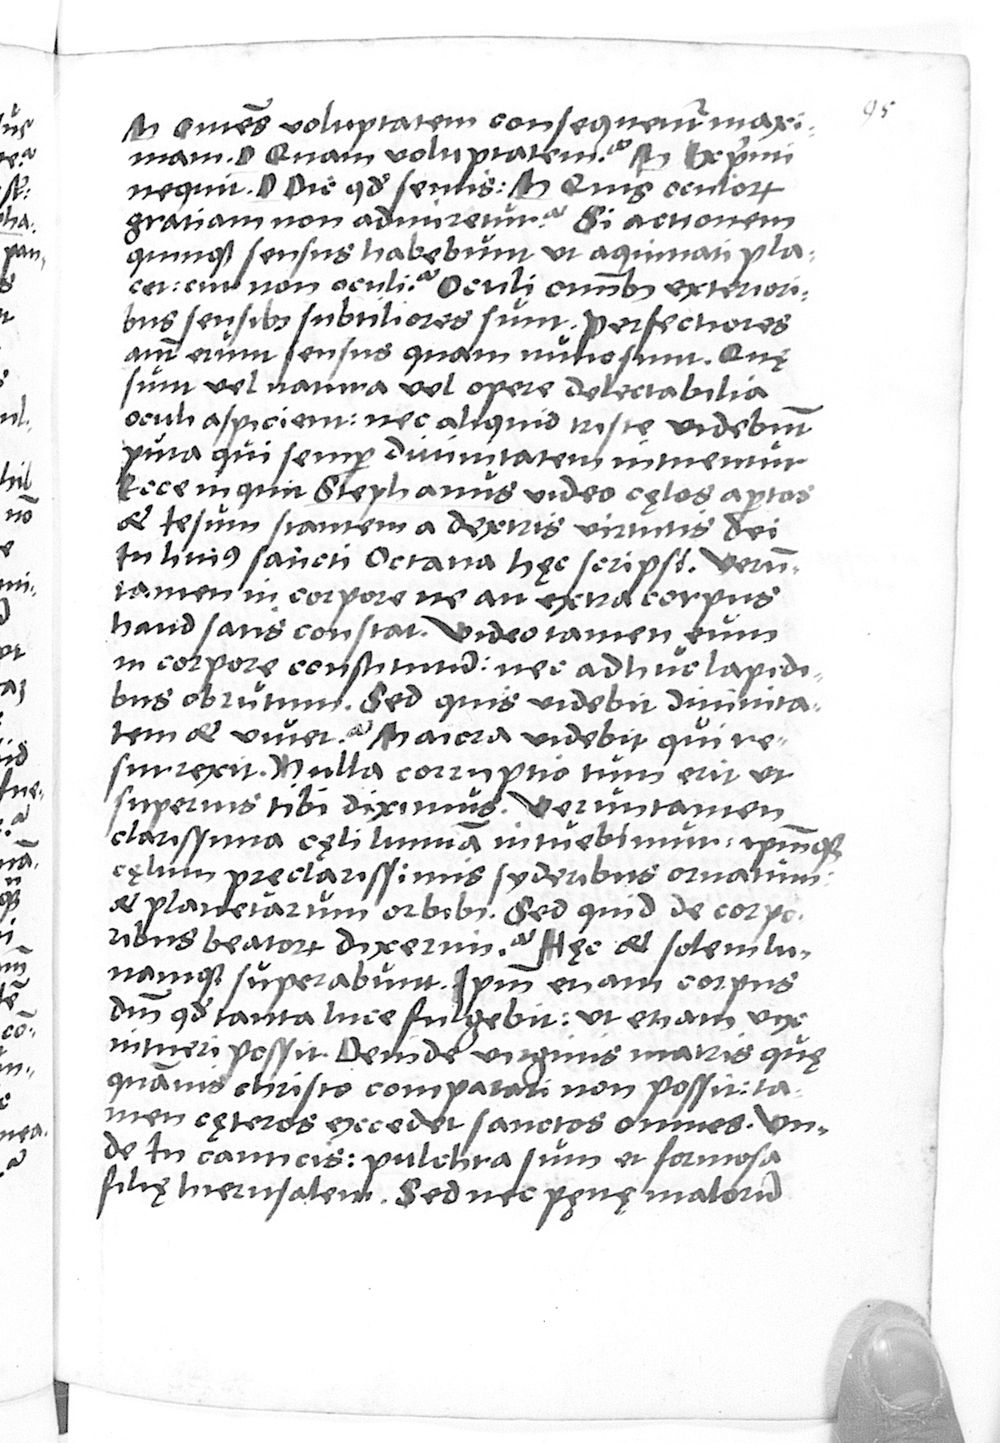 95
M Om̄es voluptatem consequent̄ maxi-
mam. D Quam voluptatem? M Exp̄mi
nequit. D Dic qđ sentis: M Quis oculoꝝ
gratiam non admiretur? Si actionem
quinqꝫ sensus habebunt ut aquinati pla-
cet: cur non oculi? Oculi omībꝫ exteriori-
bus sensibꝫ subtiliores sunt. perfectiores
aūt erunt sensus quam nunc sunt. Quę
sunt vel natura vel opere delectabilia
oculi aspicient: nec aliquid triste videbūt
puta qui semp̄ diuinitatem intuentur
Ecce inquit Stephanus video cęlos ap̄tos
& Iesum stantem a dextris virtutis dei
In huiꝰ sancti Octaua hęc scripsi. Verū-
tamen in corpore ne an extra corpus
haud satis constat. Video tamen eum
in corpore constitutū: nec adhuc lapidi-
bus obrutum. Sed quis videbit diuinita-
tem & viuet? Maiora videbit qui re-
surrexit. Nulla corruptio tum erit ut
superius tibi diximus. Veruntamen
clarissima cęli lumīa intuebimur: ipm̄qꝫ
cęlum pręclarissimis syderibus ornatum:
& planetarum orbibꝫ. Sed quid de corpo-
ribus beatoꝝ dixerim? Hęc & solem lu-
namqꝫ superabunt. Ipm̄ etiam corpus
dn̄i qđ tanta luce fulgebit: ut etiam vix
intueri possit. Deinde virginis matris quę
quāuis christo comparari non possit: ta-
men cęteros excedet sanctos omnes. Vn-
de In canticis: pulchra sum et formosa
filię hierusalem. Sed nec pęnę malorū